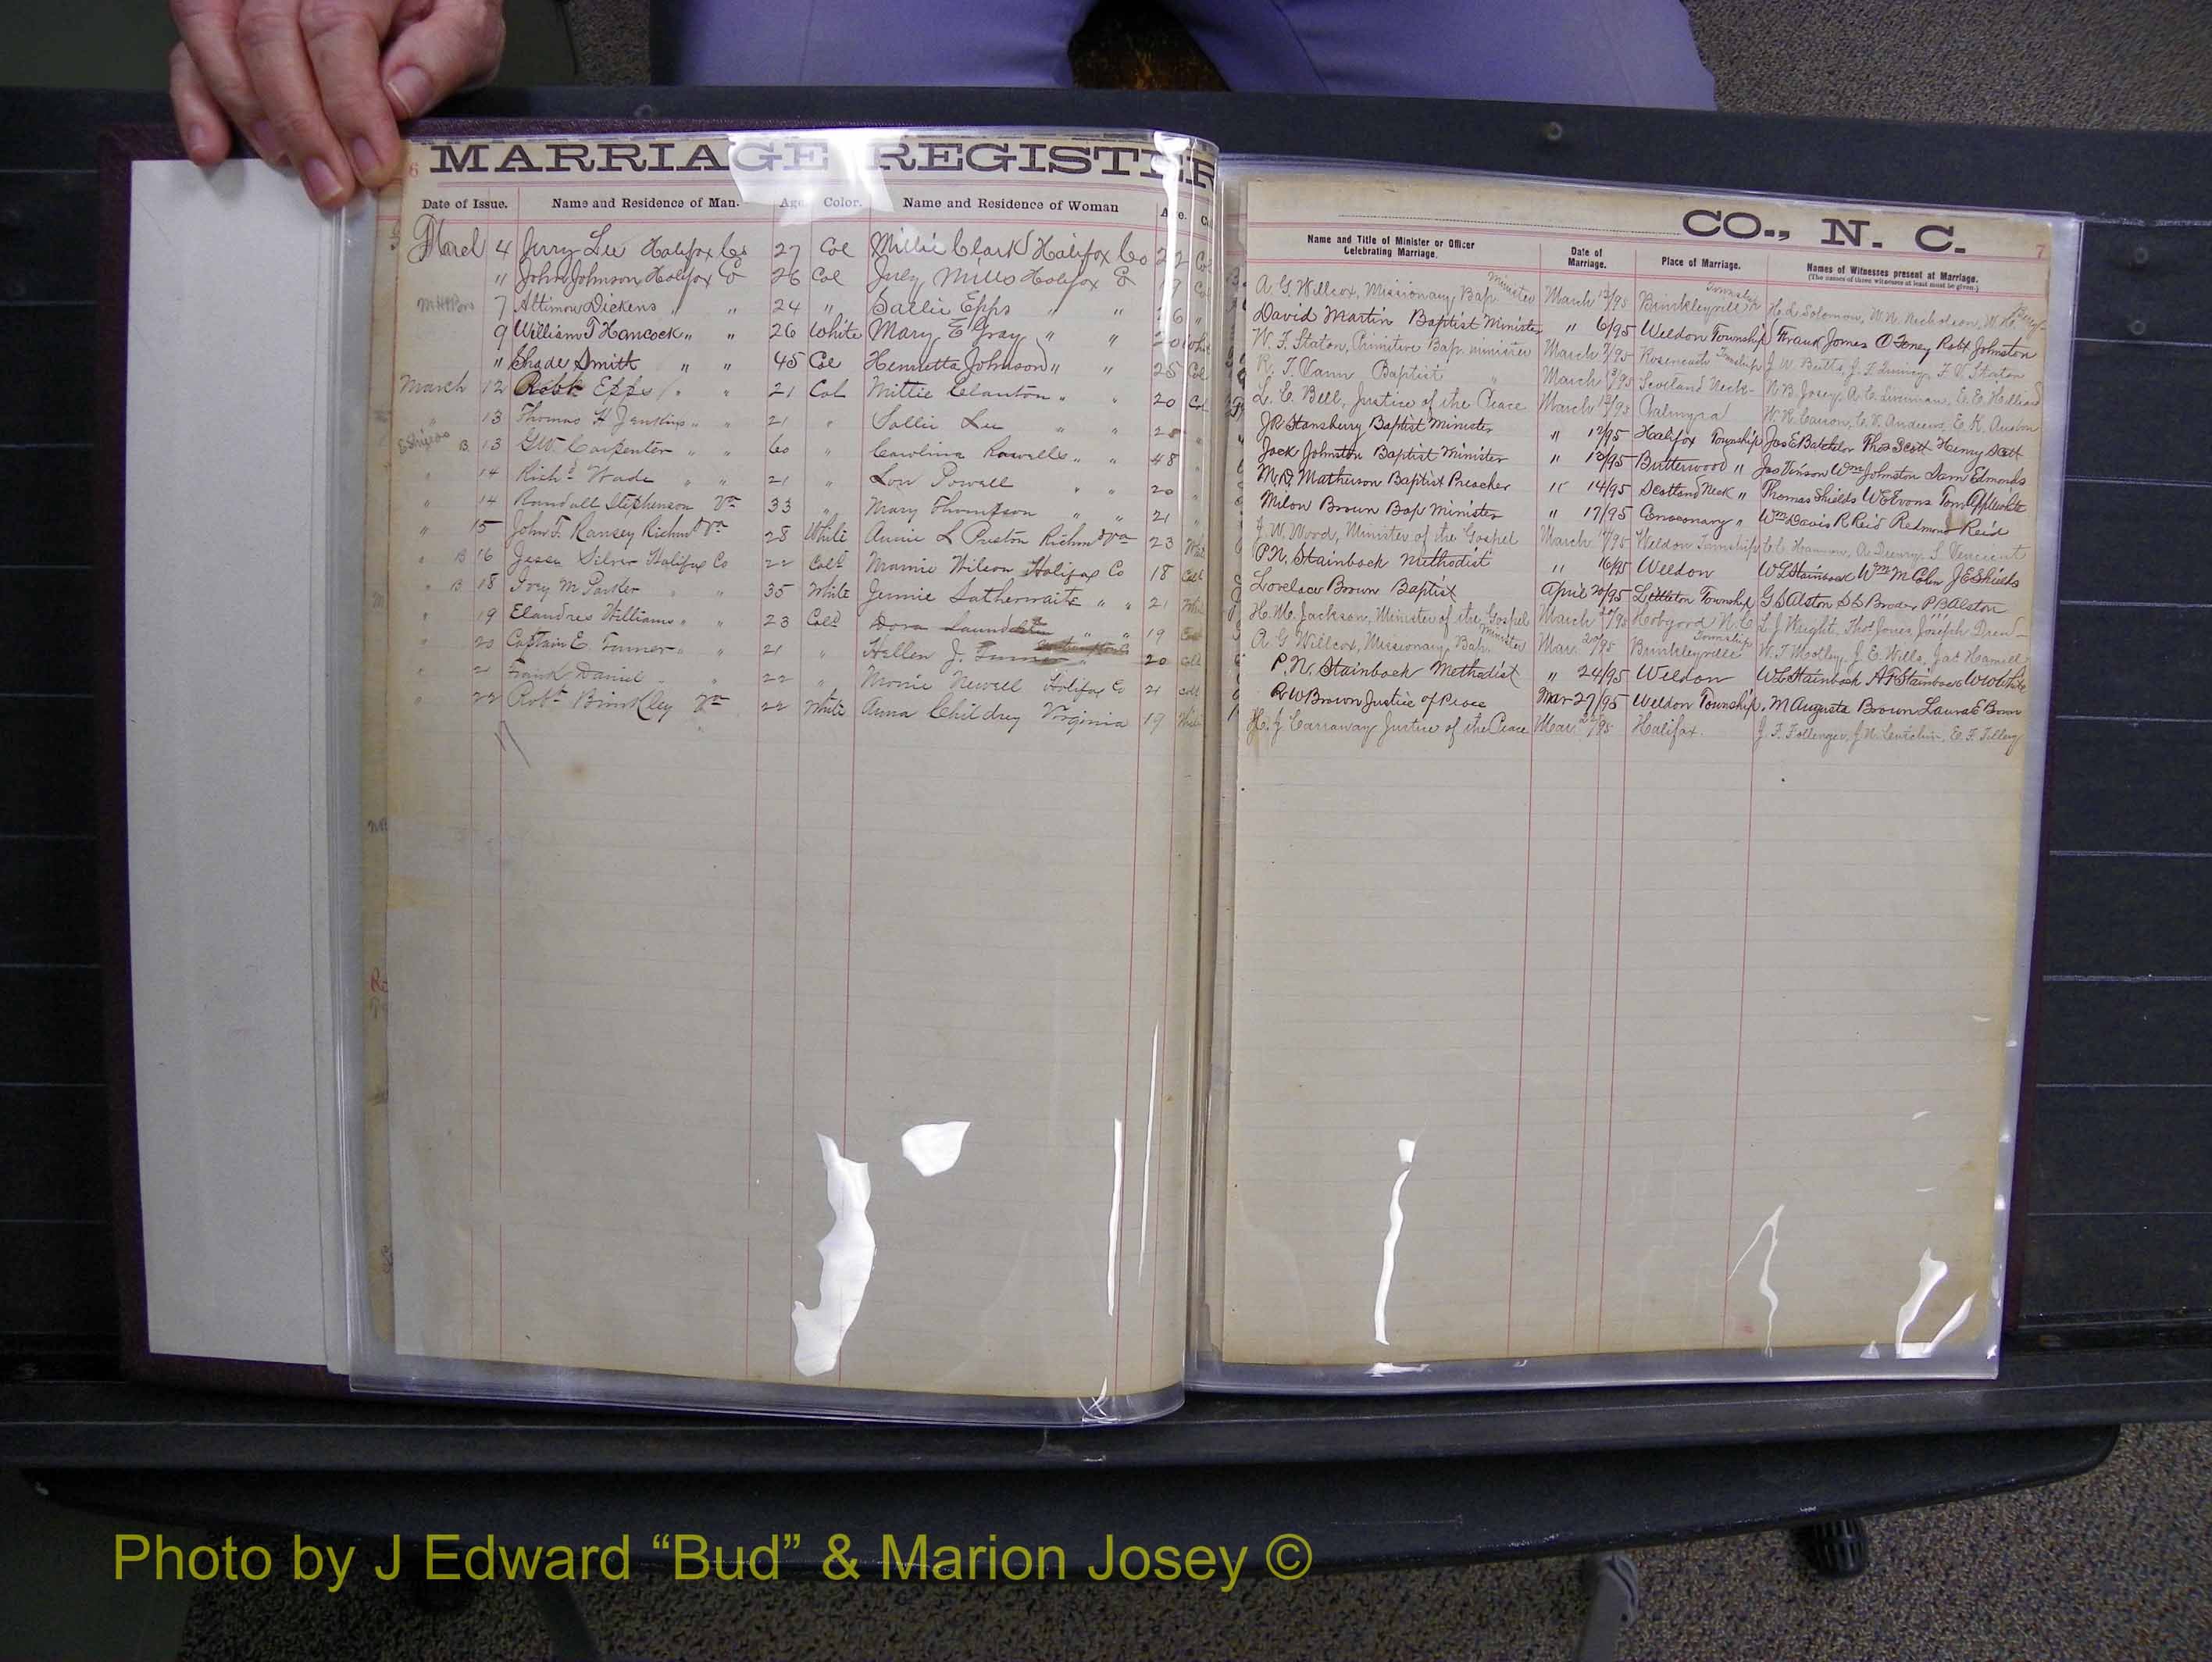 6 MARRIAGE REGISTER
Date of Issue. Name and Residence of Man. Age Color. Name and Residence of Woman Age. Co
4 Jerry Lee Halifax Co 27 Col Millie Clark Halifax Co 22 Col
" John Johnson Halifax Co 26 Col July Mills Halifax Co 19 Col
7 Dickens " " 24 " Sallie Epps " " 26 "
9 William T Hancock " " 26 White Mary E Gray " " 20 White
" Shade Smith " " 45 Col Henrietta Johnson " " 25 Col
March 12 Robt Epps " " 21 Col Mittie Clanton " " 20 Col
" 13 Thomas H Jenkins " " 21 " Sallie Lee " "
13 Geo. Carpenter " " 60 " Caroline " " 48 "
" 14 Richd Wade " " 21 " Lou Powell " " 20 "
" 14 Randall Stephenson Va 33 " Mary Thompson " " 21 "
" 15 John T. Ransey Richmd Va 28 White Annie L Preston Richmd Va 23 White
" B 16 Jesse Silver Halifax Co 22 Cold Mamie Wilson Halifax Co 18 Cold
" B 18 Ivey M Parker " " 35 White Jennie Satherwaite " " 21 White
" 19 Elandres Williams " " 23 Cold Dora " " 19
" 20 Captain E. Turner " " 21 " Hellen J. 20 Cold
" 21 Frank Daniel " " 22 " Monie Newell Halifax Co 21 Cold
" 22 Robt Brinkley Va 22 White Anna Childrey Virginia 19 White
CO., N. C.
7
Name and Title of Minister or Officer Celebrating Marriage. Date of Marriage. Place of Marriage. Names of Witnesses present at Marriage.
(The names of three witnesses at least must be given.)
A. G. Willcox, Missionary Bap. Minister March 13/95 Brinkleyville Township H. L. Solomon, W. N. Nicholson, W. H.
David Martin Baptist Minister " 6/95 Weldon Township Frank Jones O Toney Robt Johnston
W. F. Staton, Primitive Bap. minister March 7/95 Roseneath Township J. W. Butts, J. F. V. Staton
R. T. Vann Baptist " March /95 Scotland Neck N. B. Josey, A. C. Liverman, E. E. Hilliard
L. C. Bell, Justice of the Peace March 12/95 Palmyra W. H. Cason, C. D. Andrews, E. H. Austin
J R Stansberry Baptist Minister " 12/95 Halifax Township Jas E Batchelor Thos Scott Henry Scott
Jack Johnston Baptist Minister " 13/95 Butterwood " Jas Pinson Wm Johnston Sam Edmonds
M. D. Mathewson Baptist Preacher " 14/95 Scotland Neck " Thomas Shields W E Evans Tom Applewhite
Milon Brown Bap Minister " 17/95 Conoconary " Wm Davis R Reid Redmond Reid
J. W. Wood, Minister of the Gospel March /95 Weldon Township
P. N. Stainback Methodist " 16/95 Weldon W L Stainback Wm M Cohn J E Shields
Lovelace Brown Baptist April 20/95 Littleton Township G S Alston S S Broder P B Alston
H. M. Jackson, Minister of the Gospel March /95 Hobgood N. C. L. J. Wright, Thos Jones, Joseph Drew
A. G. Willcox, Missionary Bap. Minister Mar. 20/95 Brinkleyville Township W. T. Motley, J. E. Wills, Jas Hamill
P. N. Stainback Methodist " 24/95 Weldon W L Stainback A F Stainback W W White
R W Brown Justice of Peace Mar 27/95 Weldon Township, M Augusta Brown Laura E Brown
H. J. Carraway Justice of the Peace Mar. 22/95 Halifax. J. F. Follenger, J. N. E. F. Tillery
Photo by J Edward “Bud” & Marion Josey ©